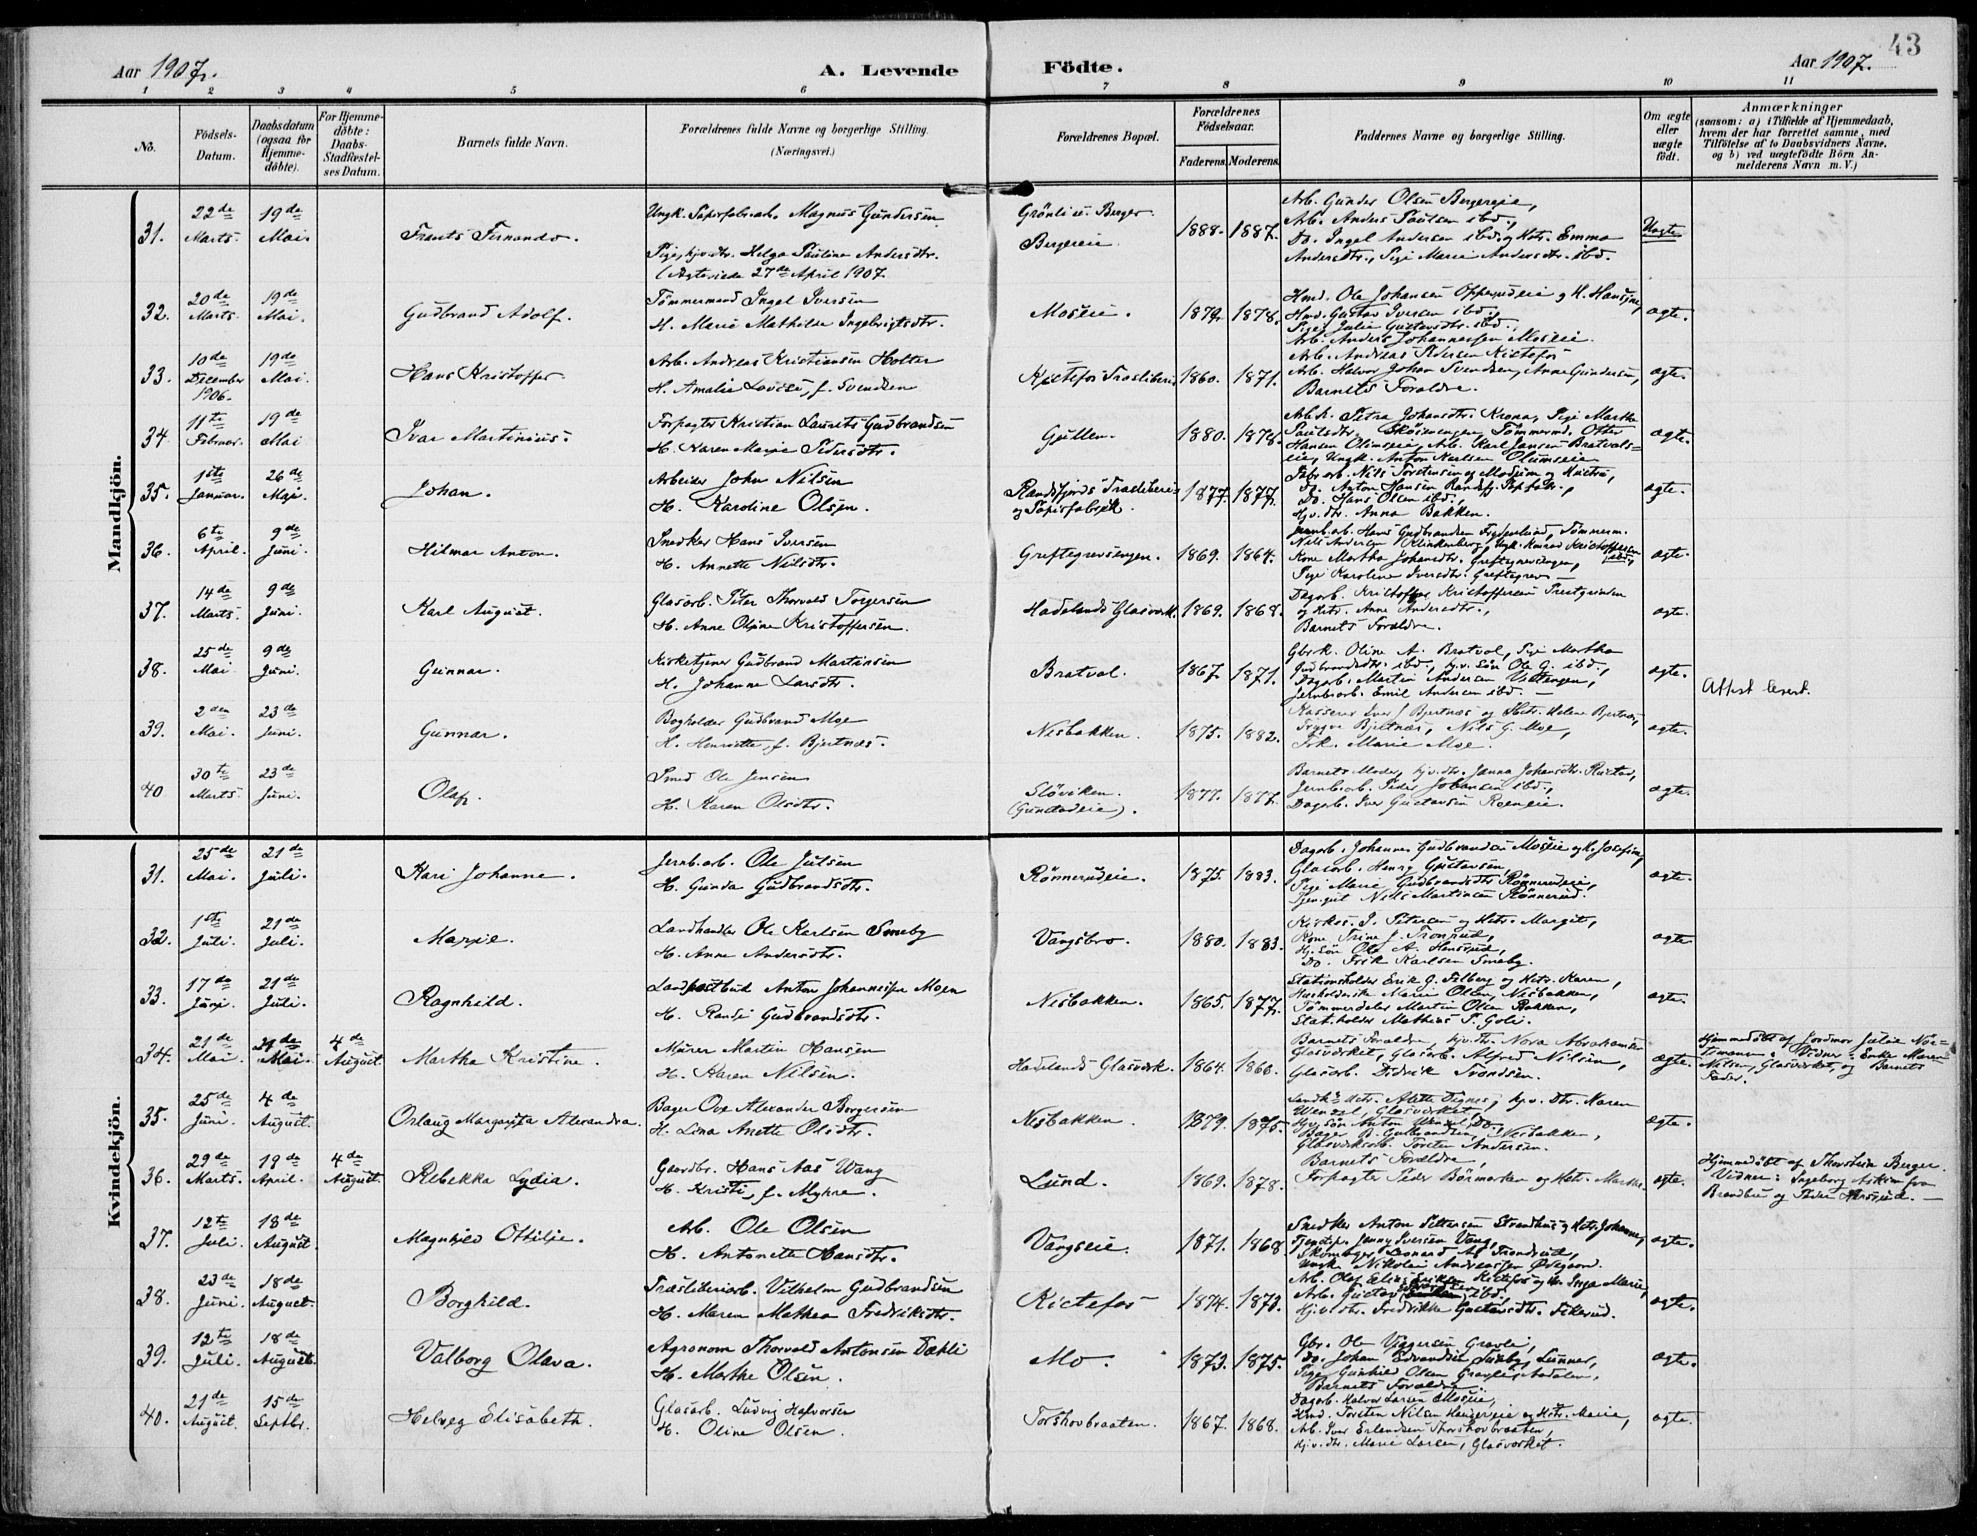 43
Aar 1907.
A. Levende
Födte.
Aar 1907.
1 2 3 4 5 6 7 8 9 10 11
No.
Födsels-Datum.
Daabsdatum (ogsaa for Hjemmedöbte).
For Hjemmedöbte: Daabs-Stadfæstelses Datum.
Barnets fulde Navn.
Forældrenes fulde Navne og borgerlige Stilling.
(Næringsvei.)
Forældrenes Bopæl.
Forældrenes Födselsaar.
Faderens. Moderens.
Faddernes Navne og borgerlige Stilling.
Om ægte eller uægte födt.
Anmærkninger
(saasom: a) i Tilfælde af Hjemmedaab, hvem der har forrettet samme, med Tilföielse af to Daabsvidners Navne, og b) ved uægtefödte Börn Anmelderens Navn m. V.)
Mandkjön.
31. 22de Marts. 19de Mai. Frants Fernando. Ungk. Papirfabr.arb. Magnus Gundersen
Pige, hjv. dtr. Helga Pauline Andersdtr.
(Ægteviede 27de April 1907.
Grönli u. Berger.
Bergereie
1888. 1887.
Arb. Gunder Olsen Bergereie,
Arb. Anders Paulsen ibd.,
Do. Ingel Andersen ibd. og Hstr. Emma
Andersdtr., Pige Marie Andersdtr. ibd.
Uægte
32. 20de Marts. 19de Mai. Gudbrand Adolf. Tømmermand Ingel Iversen
H. Marie Mathilde Ingebrigtsdtr.
Moseie. 1879. 1878.
Hmd. Ole Johansen Opperudeie og H. Hansine,
Hmd. Gustav Iversen ibd.,
Pige Julie Gustavsdtr. ibd.,
Arb. Anders Johannessen Moseie.
ægte.
33. 10de December 1906. 19de Mai. Hans Kristoffer. Arb. Andreas Kristiansen Holter
H. Amalie Lovise, f. Svendsen
Kistefos Træsliberi 1860. 1871.
Arb. Andreas Pedersen Kistefos
Arb. Halvor Johan Svendsen, Anne Gundersen,
Barnets Forældre.
ægte.
34. 11te Februar. 19de Mai Ivar Martinius. Forpagter Kristian Laurits Gudbrandsen
H. Karen Marie Pedersdtr.
Gullen. 1880. 1878.
Arb.k. Petra Johansdtr. Krona, Pige Marthe
Paulsdtr. Sköienengen, Tømmermd. Otto
Hansen Olimseie, Arb. Karl Jansen Bratvalseie, Ungk. Anton Karlsen Olumseie
ægte.
35. 1ste Januar. 26de Mai. Johan. Arbeider John Nilsen
H. Karoline Olsen.
Randsfjords Træsliberi og Papirfabrik. 1877. 1877.
Fabr.arb. Nils Torstensen og Modum og Hustru,
Do. Anton Hansen Randsfj. Papfabr.,
Do. Hans Olsen ibd.,
Hjv. dtr. Anna Bakken.
ægte.
36. 6te April. 9de Juni. Hilmar Anton. Snedker Hans Iversen
H. Annette Nilsdtr.
Greftegrevsengen. 1869. 1864.
Jernb.arb. Hans Gudbrandsen Frydenlund, Tømmerm.
Nils Andersen Klinkenberg, Ungk. Konrad Kristoffersen ibd.,
Kone Martha Johansdtr. Greftegrevsengen,
Pige Karoline Iversdtr. Greftegrev —
ægte.
37. 14de Marts. 9de Juni. Karl August. Glasarb. Peter Thorvald Torgersen
H. Anne Oline Kristoffersen.
Hadelands Glasværk. 1869. 1868.
Dagarb. Kristoffer Kristoffersen Trestgrinden
og Hstr. Anne Andersdtr.,
Barnets Forældre.
ægte.
38. 25de Mai 9de Juni. Gunnar. Kirketjener Gudbrand Martinsen
H. Johanne Larsdtr.
Bratval. 1867. 1871.
Gbr.k. Oline A. Bratval, Pige Martha
Gudbrandsdtr. ibd., hjv. søn Ole G. ibd.,
Dagarb. Martin Andersen Ustengen,
Jernb.arb. Emil Andersen ibd. —
ægte.
Attest levert.
39. 2den Mai. 23de Juni. Gunnar. Bogholder Gudbrand Moe
H. Henriette, f. Bjertnæs.
Nesbakken. 1875. 1882.
Kasserer Iver J. Bjertnæs og Hstr. Helene Bjertnæs,
Trygve Bjertnæs, Nils G. Moe,
Frk. Marie Moe.
ægte.
40 30te Marts. 23de Juni. Olaf. Smed Ole Jensen
H. Karen Olsdtr.
Slöviken.
(Grindadeie). 1877. 1877.
Barnets Moder, hjv. dtr. Janna Johansdtr. Rustad,
Jernb.arb. Peder Johansen ibd.,
Dagarb. Iver Gustavsen Roeneie.
ægte.
Kvindekjön.
31. 25de Mai. 21de Juli. Kari Johanne. Jernb.arb. Ole Julsen
H. Gunda Gudbrandsdtr.
Rönnerudeie. 1875. 1883.
Dagarb. Johannes Gudbrandsen Moseie og H. Josefine,
Glasarb. Henry Gustavsen,
Pige Marie Gudbrandsdtr. Rönnerudeie,
Tjen.gut Nils Martinsen Rönnerud.
ægte.
32. 1ste Juli. 21de Juli. Marie. Landhandler Ole Karlsen Smeby
H. Anne Andersdtr.
Vangsbro. 1880. 1883.
Kirkes. J. Petersen og Hstr. Margit,
Kone Trine J. Tronrud,
Hj. søn Ole A. Hensrud,
Do. Erik Karlsen Smeby.
ægte
33. 17de Juni. 21de Juli. Ragnhild. Landpostbud Anton Johannessen Moen
H. Randi Gudbrandsdtr.
Nesbakken. 1865. 1877.
Stationsholder Erik G. Filberg og Hstr. Karen,
Husholderske Marie Olsen, Nesbakken,
Tømmerdeler Martin Olsen Bakken,
Stat.holder Mathias P. Goli.
ægte.
34. 21de Mai. 21de Mai. 4de August. Martha Kristine. Murer Martin Hansen
H. Karen Nilsen.
Hadelands Glasværk. 1864. 1866.
Barnets Forældre, hjv. dtr. Nora Abrahamsen
Glasværket, Glasarb. Alfred Nilsen,
Glasarb. Didrik Trondsen.
ægte.
Hjemmedöbt af Jordmor Julie Nöstmann. Vidner: Enke Maren
Nilsen, Glasværket, og Barnets
Fader.
35. 25de Juni. 4de August. Oslaug Margarita Alexandra. Bager Ove Alexander Borgersen
H. Lina Anette Olsdtr.
Nesbakken. 1879. 1876.
Landh.s Hstr. Alette Vignes, hjv. dtr. Karen
Wenzel, Glasværket,
Hjv. søn Anton Wenzel, Do.,
Bager B. Gulbrandsen, Nesbakken,
Glasværksarb. Torsten Andersen.
ægte.
36. 29de Marts. 19de April. 4de August. Rebekka Lydia. Gaardbr. Hans Aas Wang
H. Kristi, f. Myhre.
Lund. 1869. 1878.
Barnets Forældre,
Forpagter Peder Börmarken og Hstr. Marthe.
ægte.
Hjemmedöbt af Thorstein Berger.
Vidner: Ingeborg Askim fra
Brandbu og Peder Hensrud. —
37. 12te Juli. 18de August. Magnhild Ottilie. Arb. Ole Olsen
H. Antonette Hansdtr.
Vangseie. 1871. 1868
Snedker Anton Pettersen Strandhus og Hstr. Johanne,
Tjenstp. Jenny Iversen Vang,
Skomager Leonard A. Trondrud,
Ungk. Nikolai Andreassen Ödegaard.
ægte.
38. 23de Juni. 18de August. Borghild. Træsliberiarb. Vilhelm Gudbrandsen
H. Maren Mathea Fredriksdtr.
Kistefos 1874. 1873.
Arb. Olaf Eliassen Kistefos og H. Inga Marie,
Arb. Gustav ibd.,
Hjv. dtr. Fredrikke Gustavsdtr. Fikerud.
ægte.
39. 12te Juli. 18de August. Valborg Olava. Agronom Thorvald Antonsen Dæhli
H. Marthe Olsen.
Mo. 1873. 1875.
Gbr. Ole Viggersen Gravli,
Do. Johan Edvardsen Smeby, Lunner,
Pige Gunhild Olsen Gravli, Aadalen,
Barnets Forældre.
ægte.
40. 21de August. 15de Septbr. Helveg Elisabeth. Glasarb. Ludvig Halvorsen
H. Oline Olsen.
Torshovbraaten. 1867. 1868.
Dagarb. Halvor Larsen Moseie,
Hmd. Torsten Nilsen Haugereie og Hstr. Marie,
Arb. Iver Erlandsen Thorshovbraaten,
Hjv. dtr. Marie Larsen, Glasværket.
ægte.